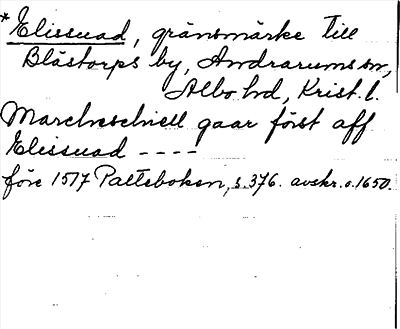 *Elissuad, gränsmärke till
Blåstorps by, Andrarums sn,
Albo hd, Krist. l.
Marchreschiell gaar först aff
Elissuad ----
före 1517 Palteboken, s. 376. avskr. o. 1650.